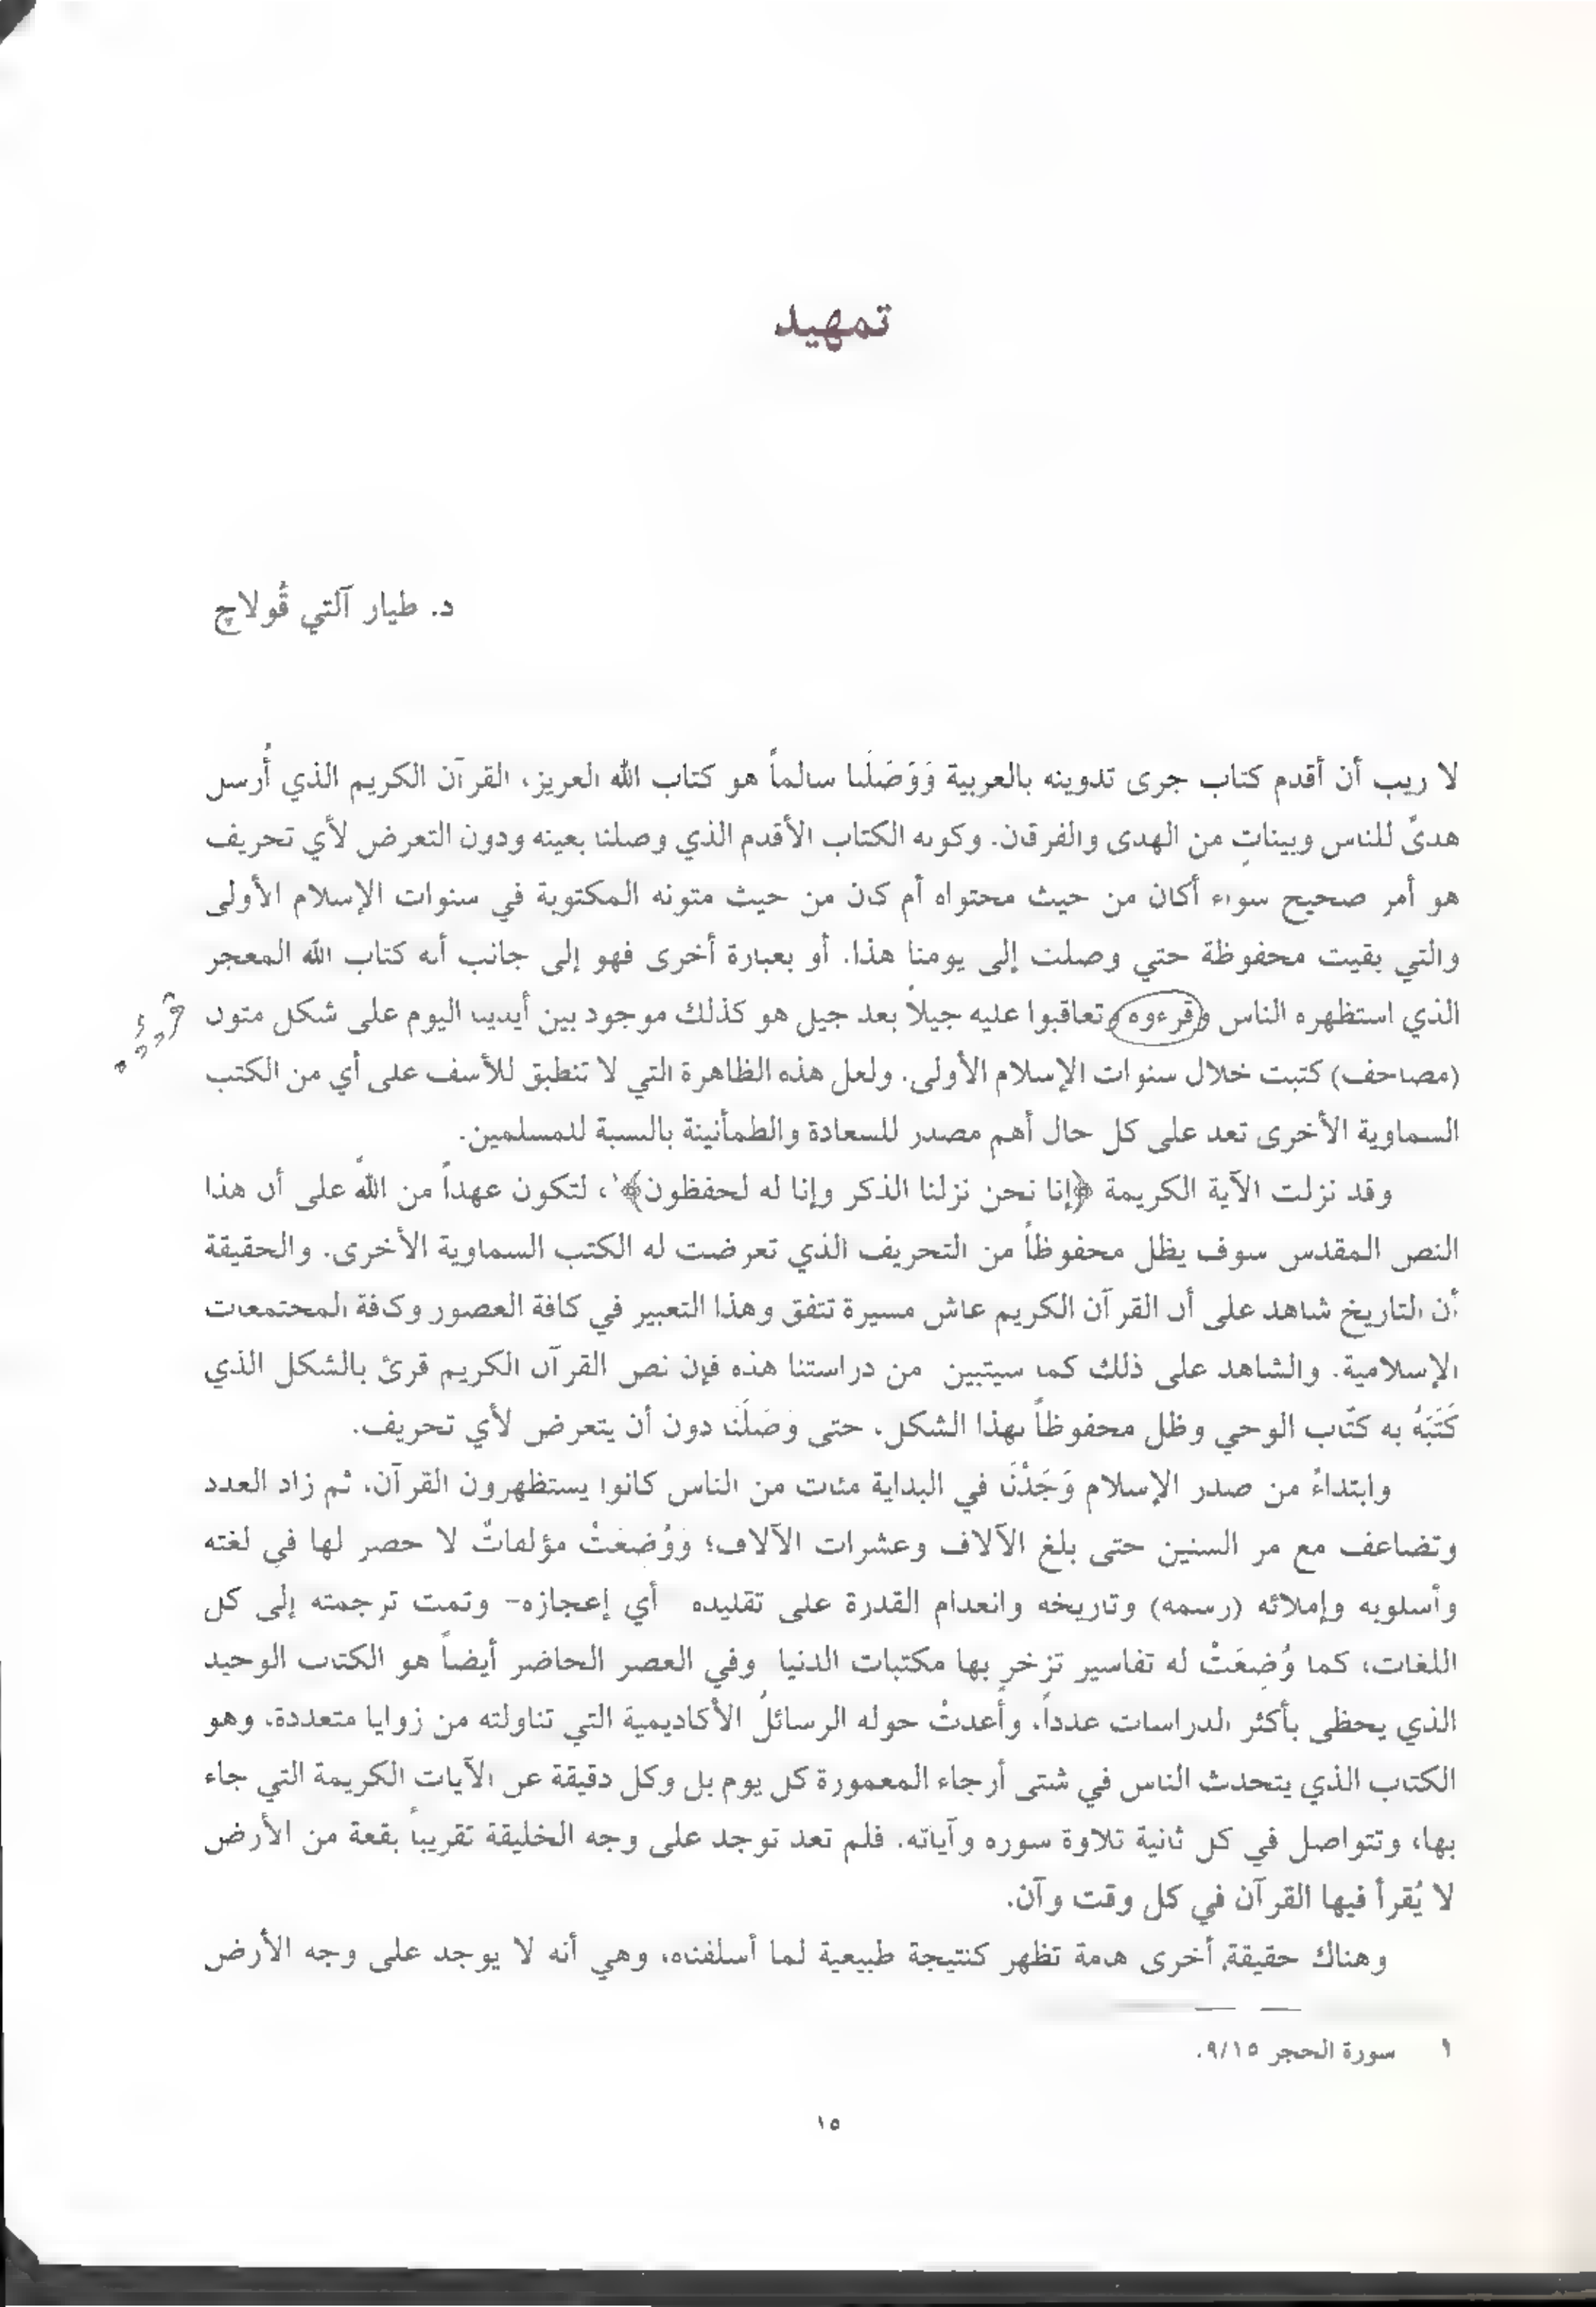 تمهيد
د. طيار آلتي قُولاچ
لا ريب أن أقدم كتاب جرى تدوينه بالعربية وَوَصَلَنا سالماً هو كتاب الله العزيز، القرآن الكريم الذي أُرسل
هدىً للناس وبيناتٍ من الهدى والفرقان. وكونه الكتاب الأقدم الذي وصلنا بعينه ودون التعرض لأي تحريف
هو أمر صحيح سواء أكان من حيث محتواه أم كان من حيث متونه المكتوبة في سنوات الإسلام الأولى
والتي بقيت محفوظة حتي وصلت إلى يومنا هذا. أو بعبارة أخرى فهو إلى جانب أنه كتاب الله المعجز
الذي استظهره الناس وقرءوه وتعاقبوا عليه جيلاً بعد جيل هو كذلك موجود بين أيدينا اليوم على شكل متون
(مصاحف) كتبت خلال سنوات الإسلام الأولى. ولعل هذه الظاهرة التي لا تنطبق للأسف على أي من الكتب
السماوية الأخرى تعد على كل حال أهم مصدر للسعادة والطمأنينة بالنسبة للمسلمين.
وقد نزلت الآية الكريمة ﴿إنا نحن نزلنا الذكر وإنا له لحفظون﴾١، لتكون عهداً من الله على أن هذا
النص المقدس سوف يظل محفوظاً من التحريف الذي تعرضت له الكتب السماوية الأخرى. والحقيقة
أن التاريخ شاهد على أن القرآن الكريم عاش مسيرة تتفق وهذا التعبير في كافة العصور وكافة المجتمعات
الإسلامية. والشاهد على ذلك كما سيتبين من دراستنا هذه فإن نص القرآن الكريم قرئ بالشكل الذي
كَتَبَهُ به كتّاب الوحي وظل محفوظاً بهذا الشكل، حتى وَصَلَنَا دون أن يتعرض لأي تحريف.
وابتداءً من صدر الإسلام وَجَدْنَا في البداية مئات من الناس كانوا يستظهرون القرآن، ثم زاد العدد
وتضاعف مع مر السنين حتى بلغ الآلاف وعشرات الآلاف؛ وَوُضِعَتْ مؤلفاتٌ لا حصر لها في لغته
وأسلوبه وإملائه (رسمه) وتاريخه وانعدام القدرة على تقليده أي إعجازه- وتمت ترجمته إلى كل
اللغات، كما وُضِعَتْ له تفاسير تزخر بها مكتبات الدنيا وفي العصر الحاضر أيضاً هو الكتاب الوحيد
الذي يحظى بأكثر الدراسات عدداً، وأُعدتْ حوله الرسائلُ الأكاديمية التي تناولته من زوايا متعددة، وهو
الكتاب الذي يتحدث الناس في شتى أرجاء المعمورة كل يوم بل وكل دقيقة عن الآيات الكريمة التي جاء
بها، وتتواصل في كل ثانية تلاوة سوره وآياته. فلم تعد توجد على وجه الخليقة تقريباً بقعة من الأرض
لا يُقرأ فيها القرآن في كل وقت وآن.
وهناك حقيقة أخرى هامة تظهر كنتيجة طبيعية لما أسلفناه، وهي أنه لا يوجد على وجه الأرض
١ سورة الحجر ٩/١٥.
١٥